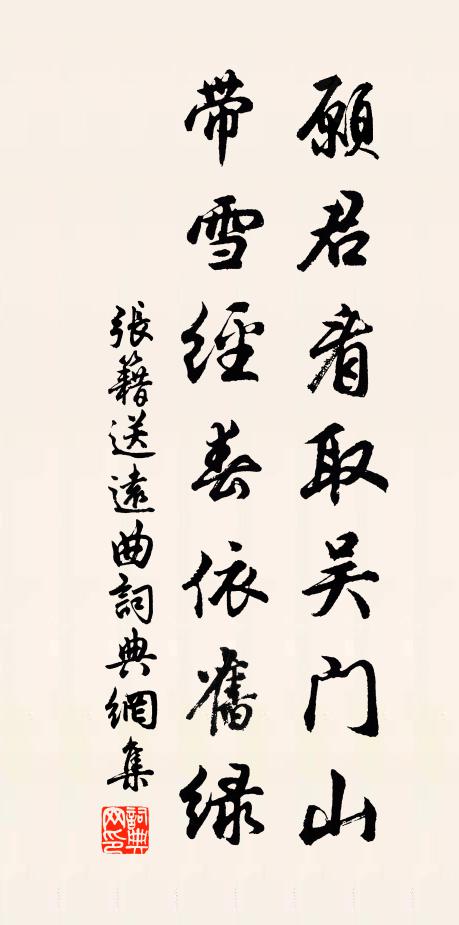 願君看取吴门山
带雪經春依舊绿
張籍送遠曲詞典網集
詞典網印